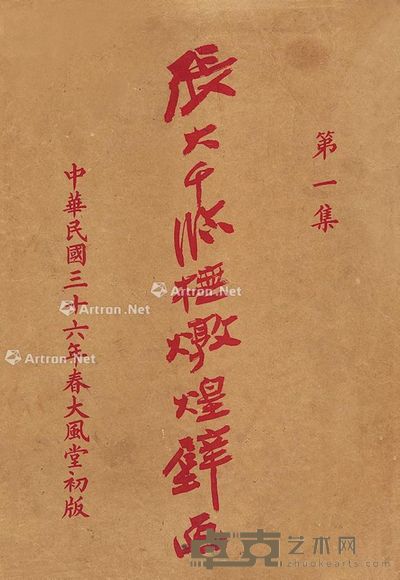 第一集
張大千臨橅燉煌壁畫
中華民國三十六年春大風堂初版
Artron.Net
Artron.Net
Artron.Net
卓克艺术网
www.zhuokearts.com